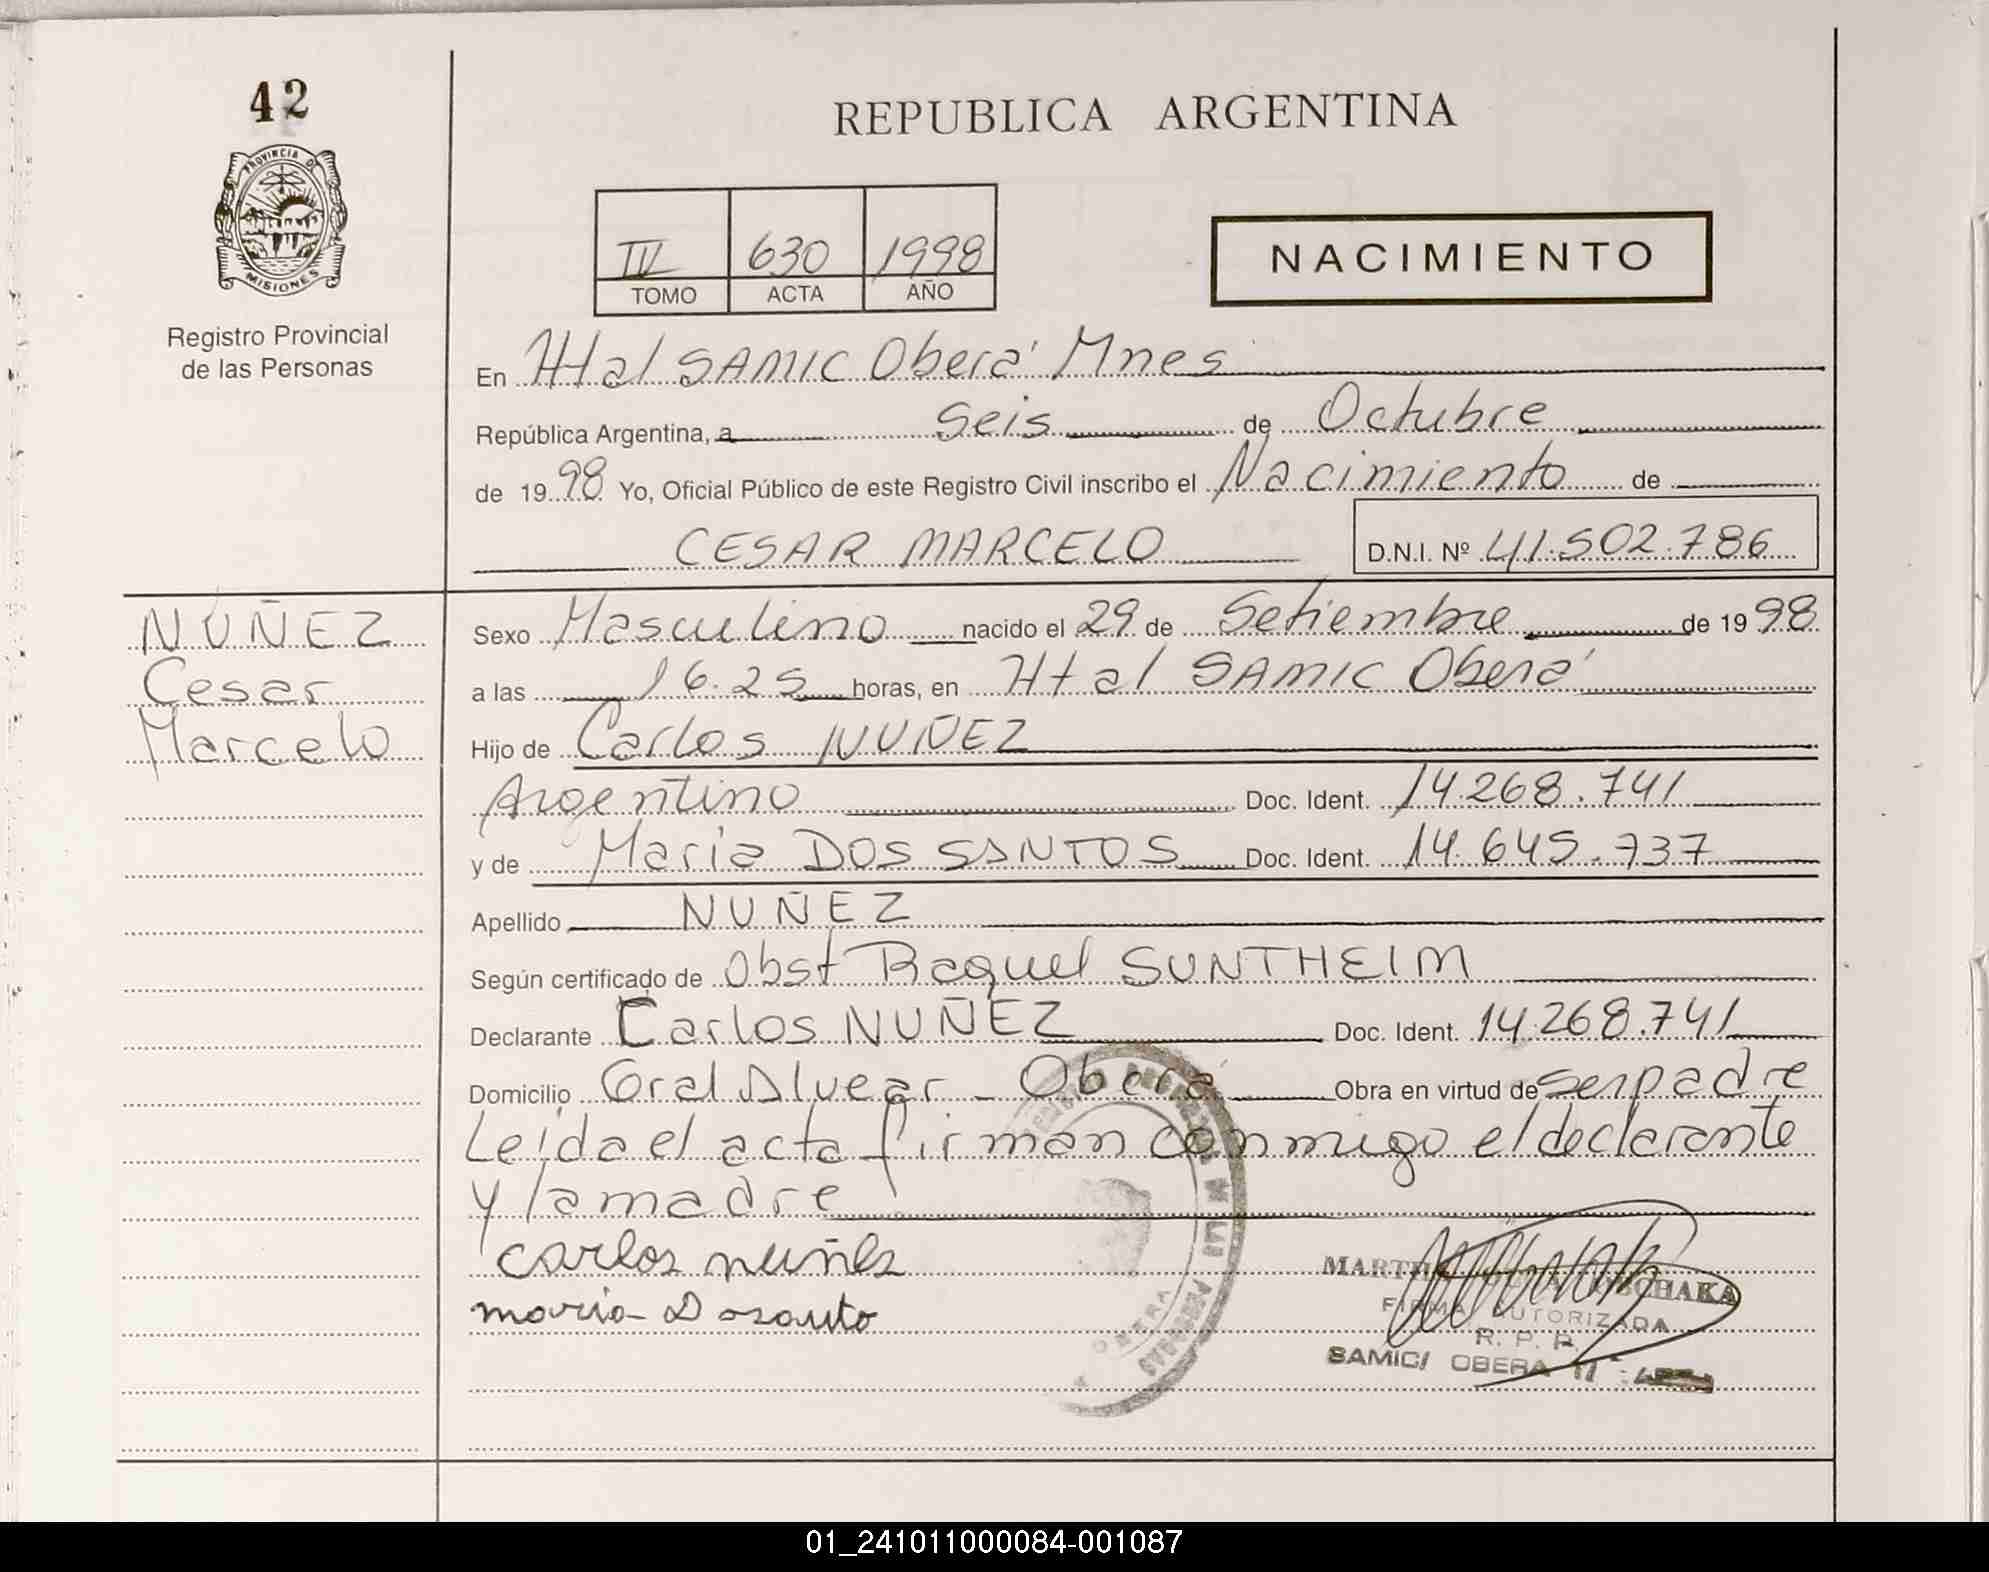 42
REPUBLICA ARGENTINA
PROVINCIA DE
MISIONES
IV 630 1998
TOMO ACTA AÑO
NACIMIENTO
Registro Provincial
de las Personas
En Htal SAMIC Oberá Mnes
República Argentina, a Seis de Octubre
de 1998 Yo, Oficial Público de este Registro Civil inscribo el Nacimiento de
CESAR MARCELO D.N.I. Nº 41.502.786
NUÑEZ
Cesar
Marcelo
Sexo Masculino nacido el 29 de Setiembre de 1998
a las 16.25 horas, en Htal SAMIC Oberá
Hijo de Carlos NUÑEZ
Argentino Doc. Ident. 14.268.741
y de Maria DOS SANTOS Doc. Ident. 14.645.737
Apellido NUÑEZ
Según certificado de Obst Raquel SUNTHEIM
Declarante Carlos NUÑEZ Doc. Ident. 14.268.741
Domicilio Gral Alvear - Oberá Obra en virtud de ser padre
Leida el acta firman conmigo el declarante
y la madre
carlos nuñez
maria Dosanto
FIRMA AUTORIZADA
R. P. P.
SAMIC/ OBERA
OBERA
01_241011000084-001087